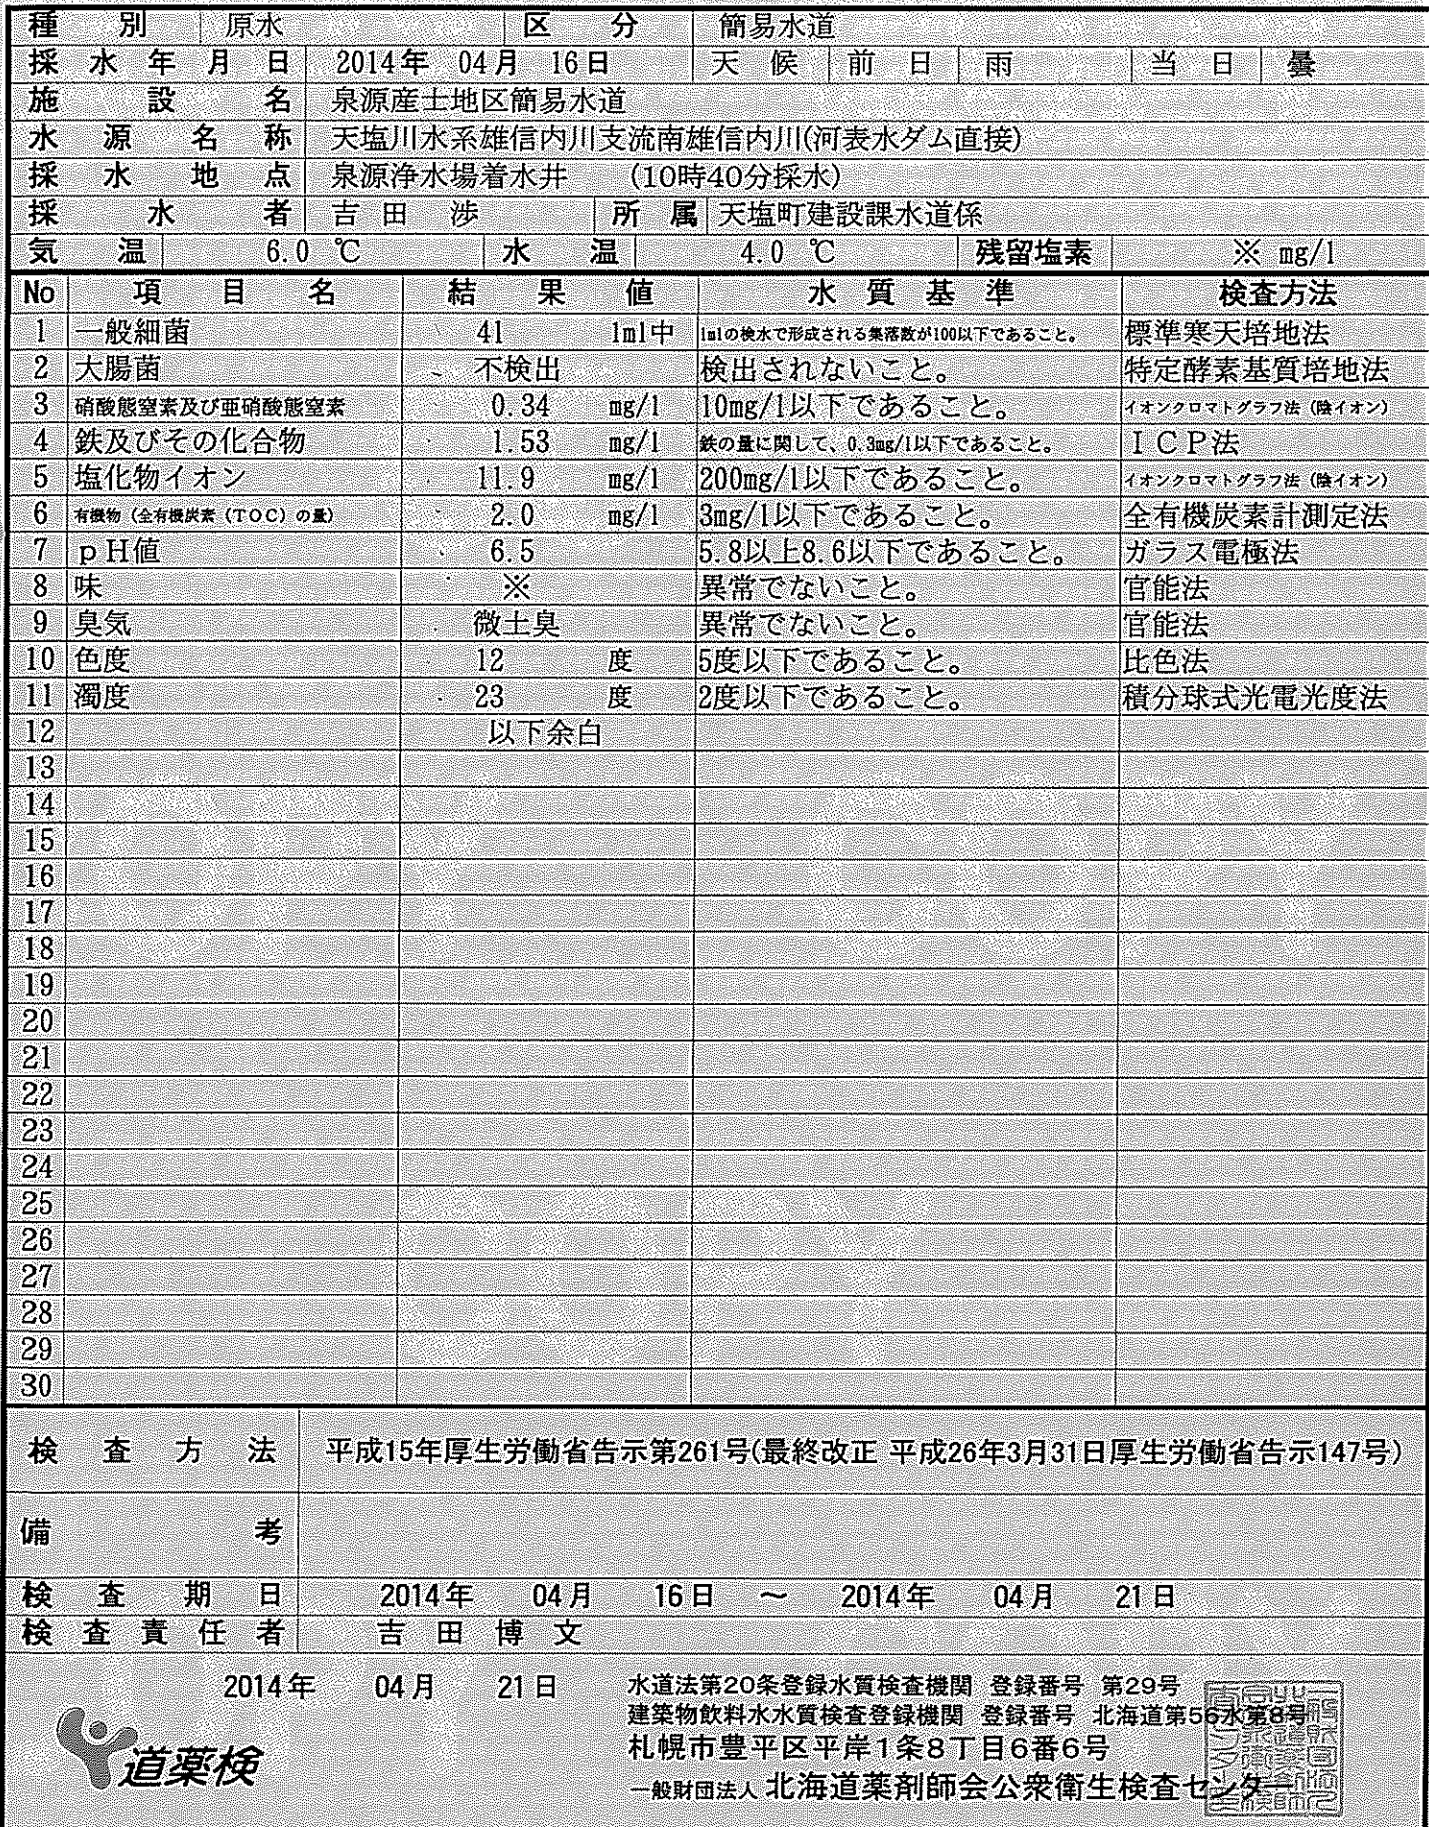 種別 原水 区分 簡易水道
採水年月日 2014年 04月 16日 天候 前日 雨 当日 曇
施設名 泉源産士地区簡易水道
水源名称 天塩川水系雄信内川支流南雄信内川(河表水ダム直接)
採水地点 泉源浄水場着水井 (10時40分採水)
採水者 吉田 渉 所属 天塩町建設課水道係
気温 6.0 ℃ 水温 4.0 ℃ 残留塩素 ※ mg/l
No 項目名 結果値 水質基準 検査方法
1 一般細菌 41 1ml中 1mlの検水で形成される集落数が100以下であること。 標準寒天培地法
2 大腸菌 不検出 検出されないこと。 特定酵素基質培地法
3 硝酸態窒素及び亜硝酸態窒素 0.34 mg/l 10mg/l以下であること。 イオンクロマトグラフ法(陰イオン)
4 鉄及びその化合物 1.53 mg/l 鉄の量に関して、0.3mg/l以下であること。 ICP法
5 塩化物イオン 11.9 mg/l 200mg/l以下であること。 イオンクロマトグラフ法(陰イオン)
6 有機物(全有機炭素(TOC)の量) 2.0 mg/l 3mg/l以下であること。 全有機炭素計測定法
7 pH値 6.5 5.8以上8.6以下であること。 ガラス電極法
8 味 ※ 異常でないこと。 官能法
9 臭気 微土臭 異常でないこと。 官能法
10 色度 12 度 5度以下であること。 比色法
11 濁度 23 度 2度以下であること。 積分球式光電光度法
12 以下余白
13
14
15
16
17
18
19
20
21
22
23
24
25
26
27
28
29
30
検査方法 平成15年厚生労働省告示第261号(最終改正 平成26年3月31日厚生労働省告示147号)
備考
検査期日 2014年 04月 16日 ～ 2014年 04月 21日
検査責任者 吉田博文
2014年 04月 21日
水道法第20条登録水質検査機関 登録番号 第29号
建築物飲料水水質検査登録機関 登録番号 北海道第56水第8号
札幌市豊平区平岸1条8丁目6番6号
道薬検
一般財団法人 北海道薬剤師会公衆衛生検査センター